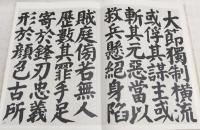 大節獨制橫流
或俘其謀主或
斬其元惡當以
救兵懸絕身陷
賊庭傍若無人
歷數其罪手足
寄於鋒刃忠義
形於顏色古所